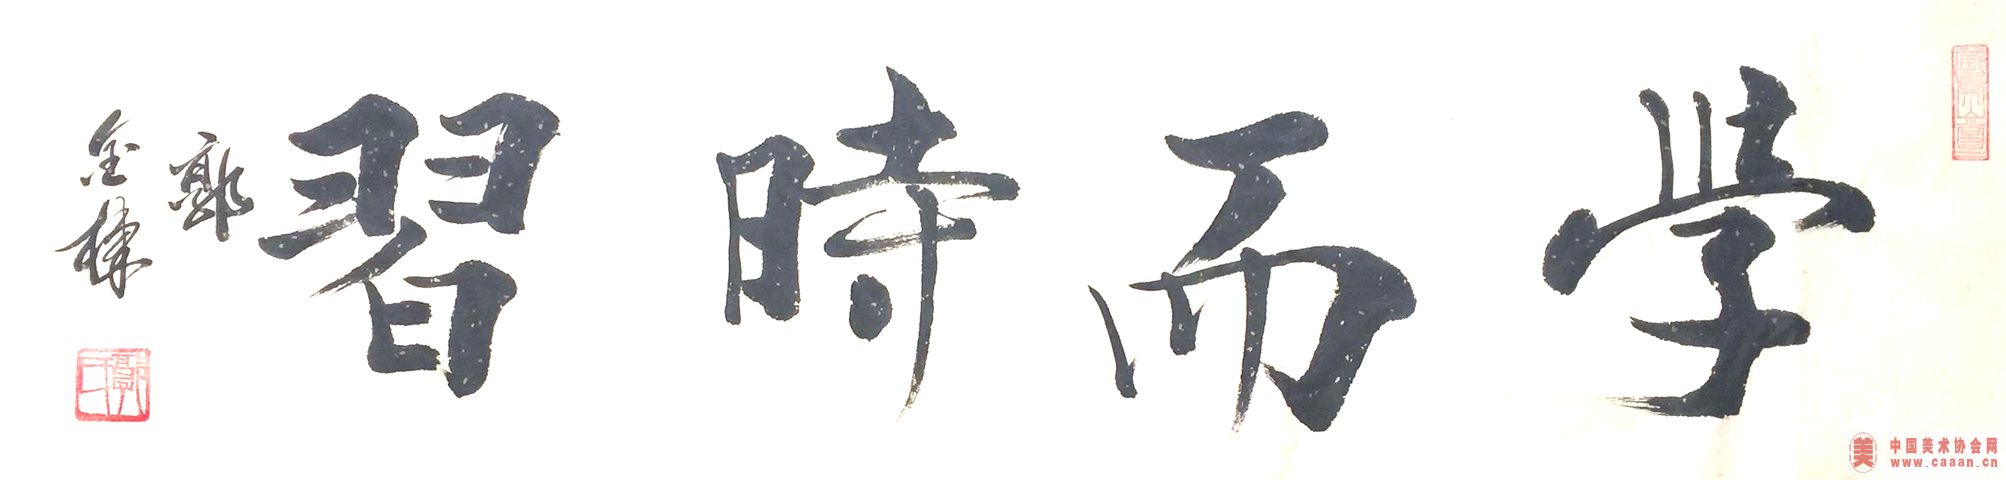 学而時習
郭
金棟
中国美术协会网
www.caaan.cn